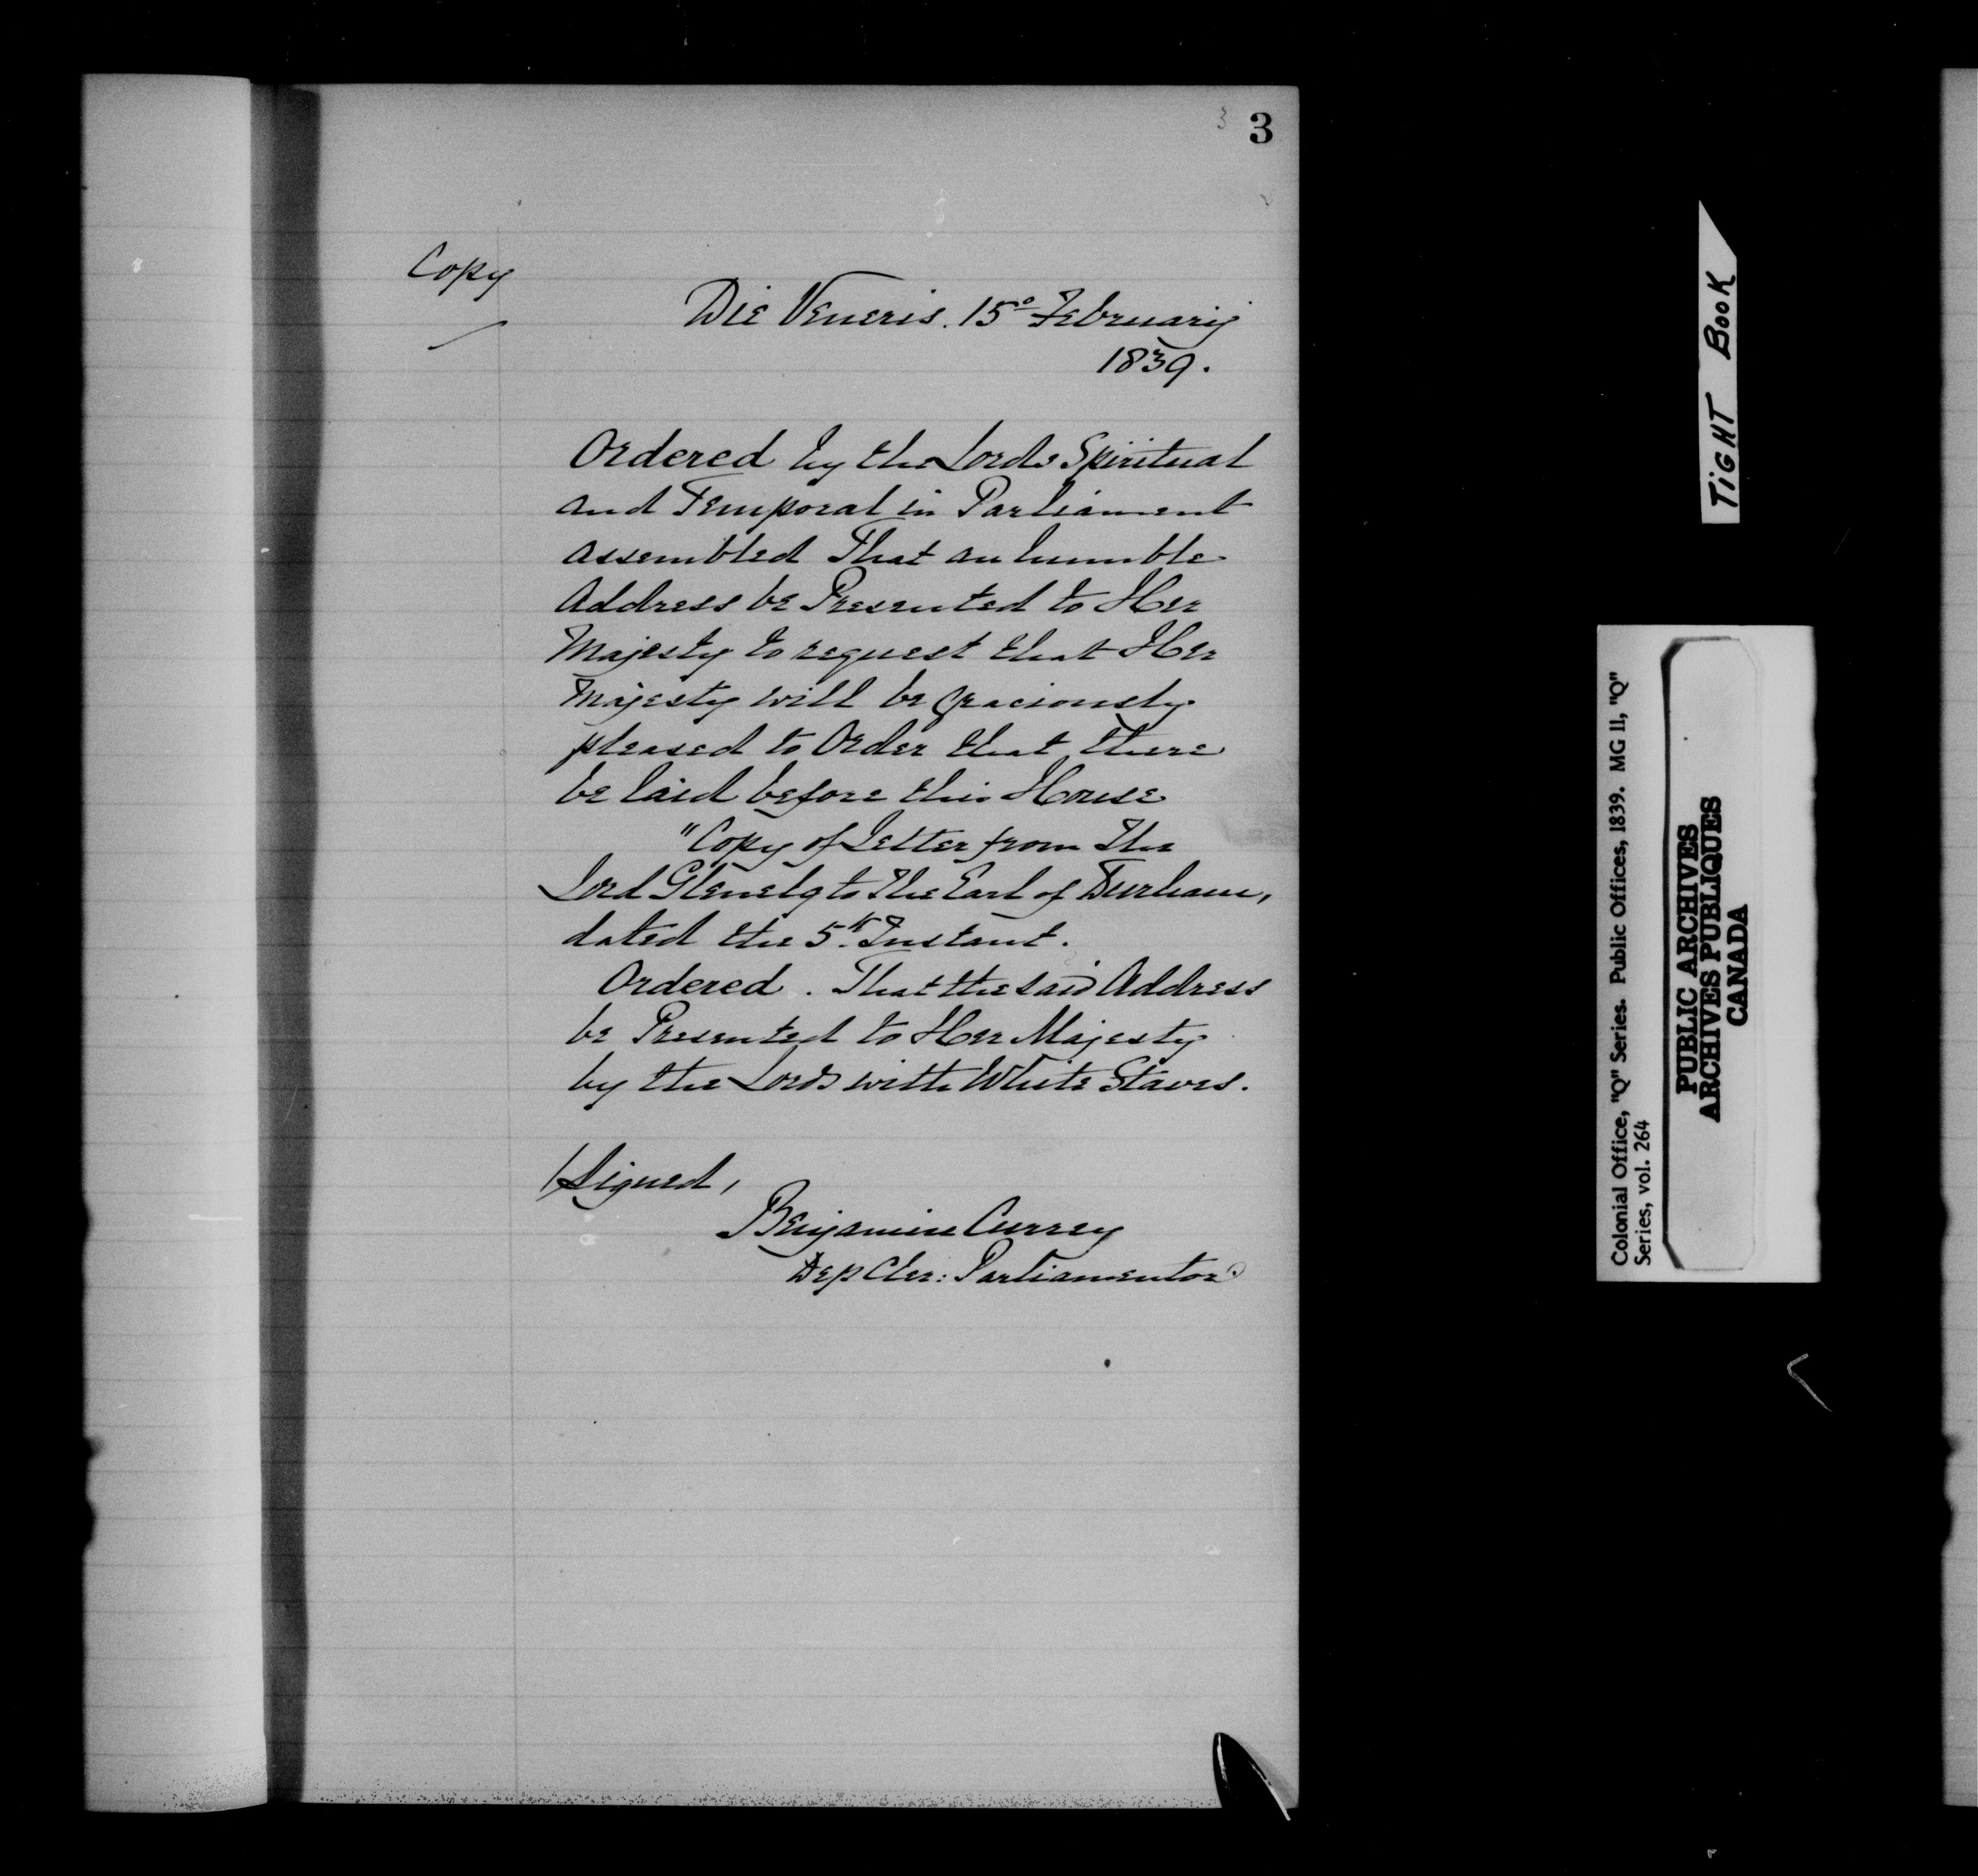 3
3
Copy
Die Veneris. 15° Februarij
1839.
Ordered by the Lords Spiritual
and Temporal in Parliament
assembled That an humble
Address be Presented to Her
Majesty to request that Her
Majesty will be graciously
pleased to Order that there
be laid before this House
"Copy of Letter from The
Lord Glenelg to The Earl of Durham,
dated the 5th Instant.
Ordered. That the said Address
be Presented to Her Majesty
by the Lords with White Staves.
(Signed,
Benjamin Currey
Dep Cler: Parliamentor.
TIGHT BOOK
Colonial Office, "Q" Series. Public Offices, 1839. MG 11, "Q"
Series, vol. 264
PUBLIC ARCHIVES
ARCHIVES PUBLIQUES
CANADA